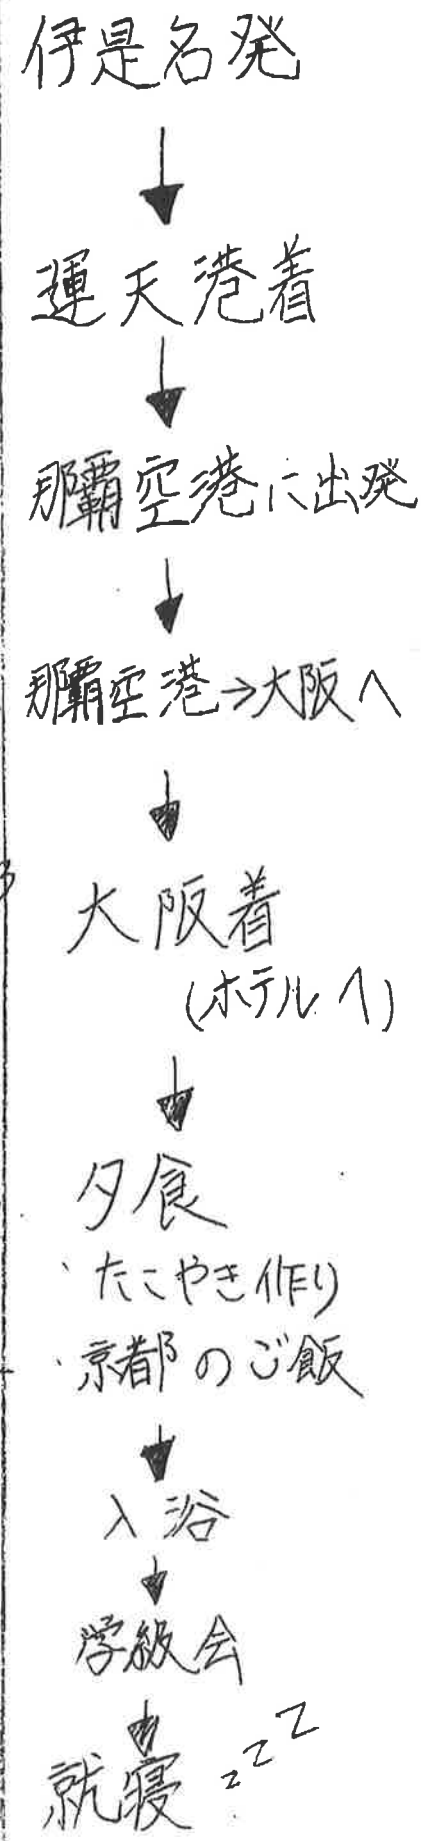 伊是名発
↓
運天港着
↓
那覇空港に出発
↓
那覇空港→大阪へ
↓
大阪着
(ホテルへ)
↓
夕食
・たこやき作り
・京都のご飯
↓
入浴
↓
学級会
↓
就寝 zzz